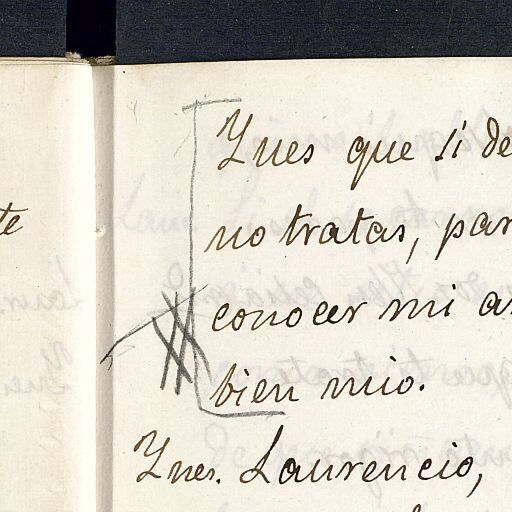 te
Ynes que si de
no tratas, par
conocer mi a
bien mio.
Ynes. Laurencio,